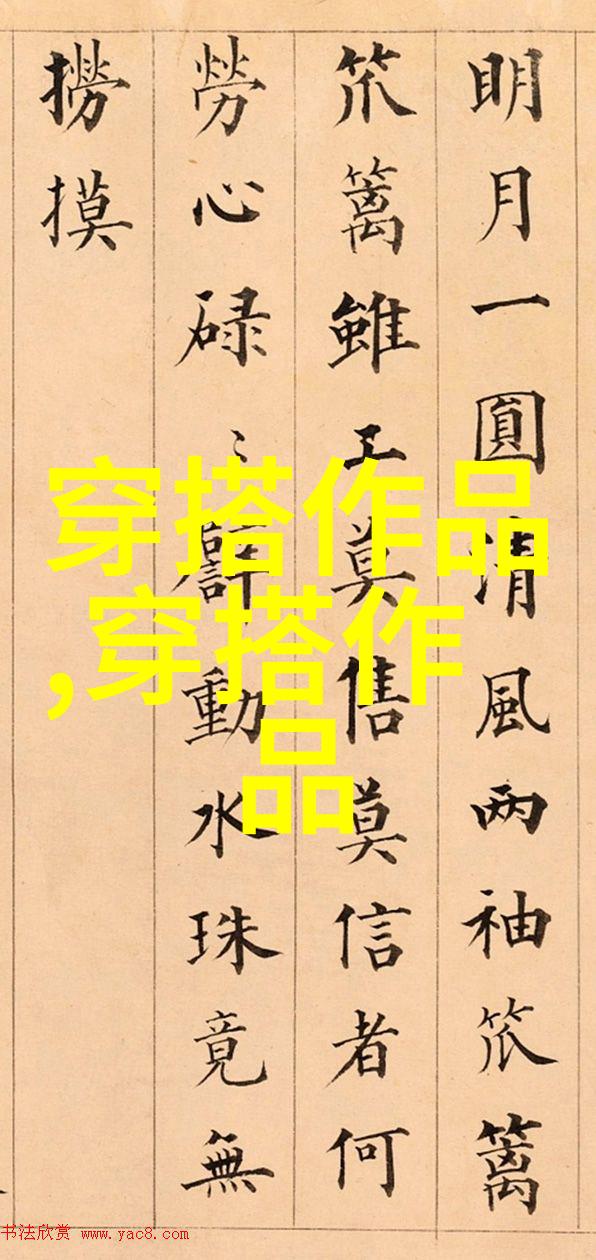 明月一圓清風两袖笊籬
笊籬雖工莫售莫信者何
勞心碌〻動水珠竟無
撈摸
穿搭作品
,穿搭作
品
书法欣赏 www.yac8.com